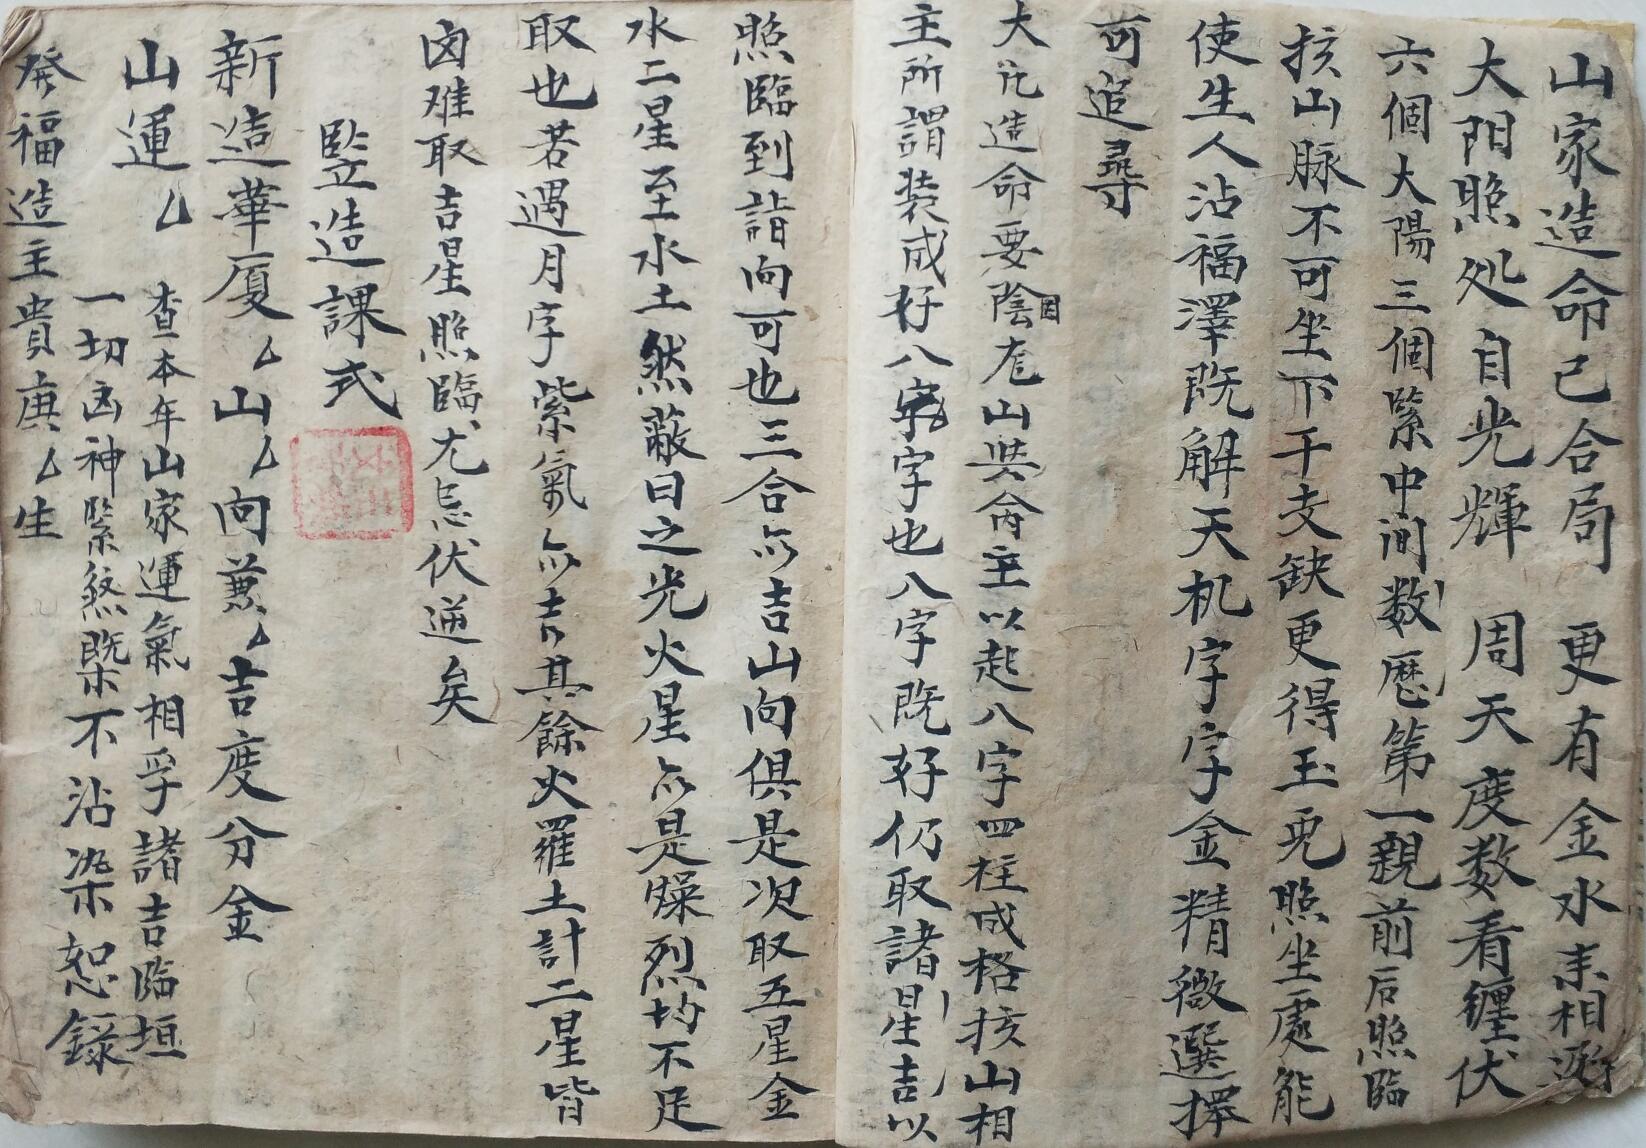 山家造命已合局　更有金水来相逐
大阳照处自光輝　周天度数看缠伏
六個大陽三個緊中间数歷第一親前后照臨
扶山脉不可坐下干支缺更得玉兎照坐處能
使生人沾福澤既解天机字字金精微選擇
可追尋
大凡造命要陰龙山與命主以起八字四柱成格扶山相
主所謂装成好八字也八字既好仍取諸星吉以
照臨到諧向可也三合亦吉山向俱是次取五星金
水二星至水土然蔽日之光火星亦是燥烈均不足
取也若遇月字紫氣亦吉其餘火羅土計二星皆
凶难取吉星照臨尤忌伏逆矣
竪造課式
新造華厦厶山厶向兼厶吉度分金
山運厶
查本年山家運氣相孚諸吉臨垣
一切凶神緊煞既不沾染恕錄
発福造主貴庚厶生